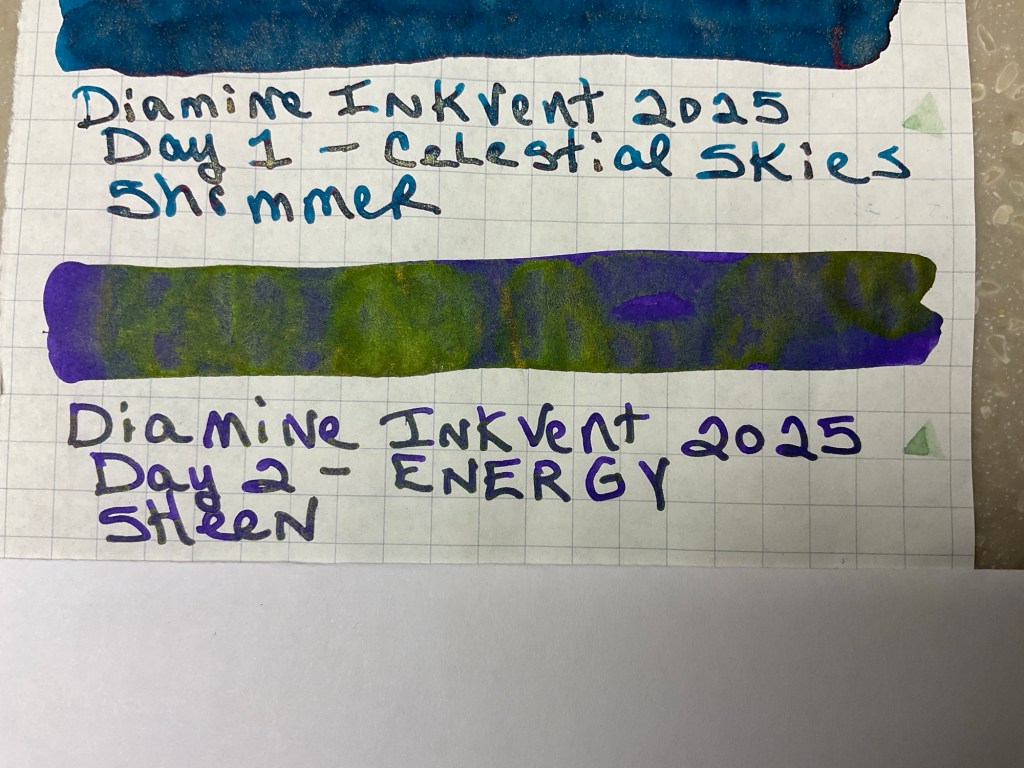 Diamine INKVent 2025
Day 1 - Celestial SKies
Shimmer
Diamine INKVent 2025
Day 2 - ENERGY
SHeeN